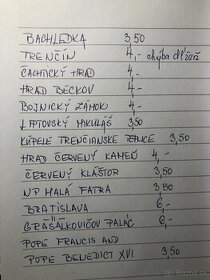 BACHLEDKA 3,50
TRENČÍN 4,-
ČACHTICKÝ HRAD 4,-
HRAD BECKOV 4,-
BOJNICKÝ ZÁMOK 4,-
LIPTOVSKÝ MIKULÁŠ 3,50
KÚPELE TRENČIANSKE TEPLICE 3,50
HRAD ČERVENÝ KAMEŇ 4,-
ČERVENÝ KLÁŠTOR 3,50
NP MALÁ FATRA 3,50
BRATISLAVA 6,-
GRASALKOVIČOV PALÁC 6,-
POPE FRANCIS AND
POPE BENEDICT XVI 3,50